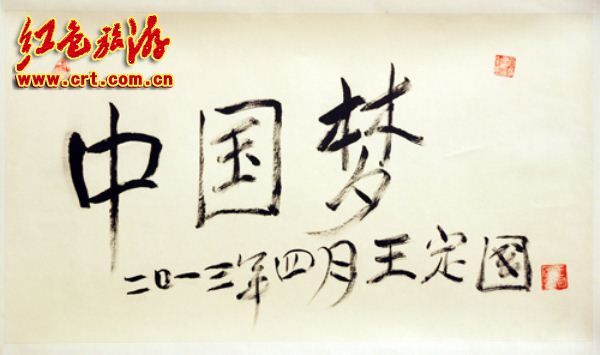 红色旅游
www.crt.com.cn
中国梦
二〇一三年四月王定国